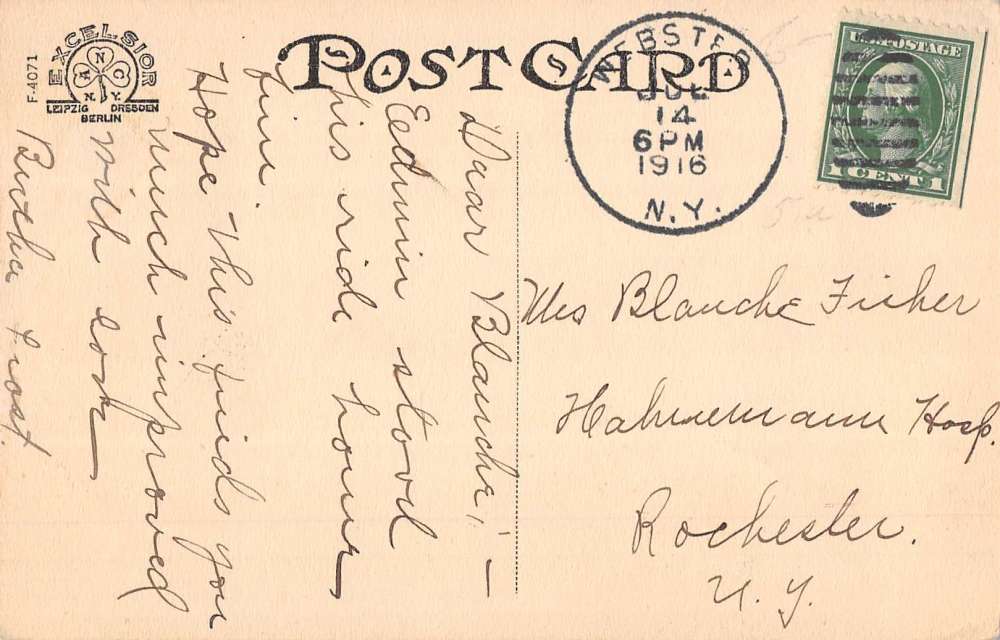 F-4071
EXCELSIOR
A N C
N. Y.
LEIPZIG DRESDEN
BERLIN
POST CARD
WEBSTER
JUL
14
6 PM
1916
N. Y.
U.S. POSTAGE
1 CENT 1
Dear Blanche, —
Eedwin stood
his ride home
fine
Hope this finds you
much improved
with love
Bertha Frost.
Mrs Blanche Fisher
Hahnemann Hosp.
Rochester.
N. Y.